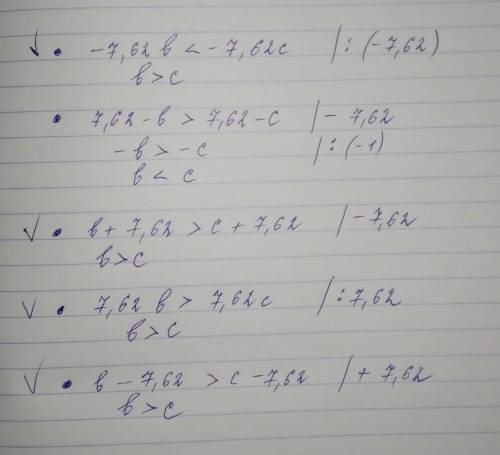 √ • -7,62 в < -7,62с | : (-7,62)
в > с
• 7,62 - в > 7,62 - с | - 7,62
- в > - с | : (-1)
в < с
√ • в + 7,62 > с + 7,62 | - 7,62
в > с
√ • 7,62 в > 7,62 с | : 7,62
в > с
√ • в - 7,62 > с - 7,62 | + 7,62
в > с